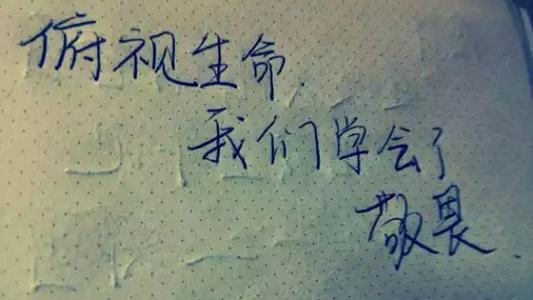 俯视生命,
我们学会了
敬畏.